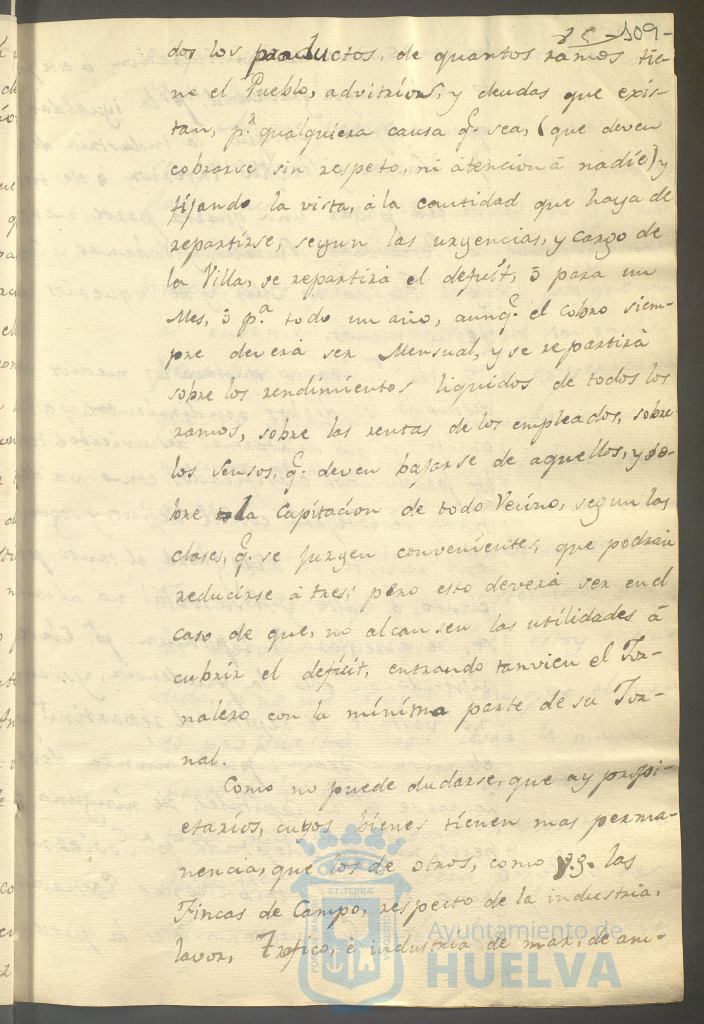 85 -109-
dos los productos, de quantos ramos tie-
ne el Pueblo, advitrios, y deudas que exis-
tan, p.r qualquiera causa q.e sea, (que deven
cobrarse sin respeto, ni atencion â nadie) y
fijando la vista, â la cantidad que haya de
repartirse, segun las urgencias, y cargo de
la Villa, se repartirà el defisit, ô para un
Mes, ô p.a todo un año, aunq.e el cobro siem-
pre deverà ser Mensual, y se repartirà
sobre los rendimientos liquidos de todos los
ramos, sobre las rentas de los empleados, sobre
los sensos, q.e deven bajarse de aquellos, y so-
bre la Capitacion de todo Vecino, segun las
clases, q.e se juzgen convenientes, que podràn
reducirse â tres; pero esto deverà ser en el
caso de que, no alcansen las utilidades â
cubrir el defìcit, entrando tanvien el Jor-
nalero con la mìnima parte de su Jor-
nal.
Como no puede dudarse, que ay propi-
etarios, cuyos bienes tienen mas perma-
nencia, que los de otros, como v.g. las
Fincas de Campo, respecto de la industria,
lavor, Trafico, è industria de mar, de ani-
PORTUS MARIS
ET TERRAE
CUSTODIA
Ayuntamiento de
HUELVA